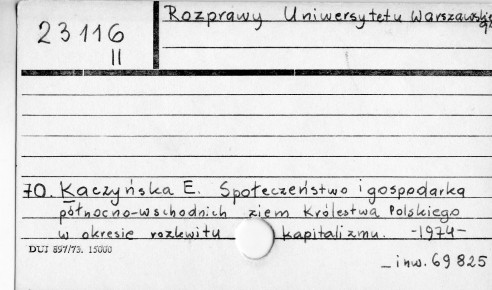 23116
II
Rozprawy Uniwersytetu Warszawskie
70. Kaczyńska E. Społeczeństwo i gospodarka
północno-wschodnich ziem Królestwa Polskiego
w okresie rozkwitu kapitalizmu. -1974-
DUJ 897/73. 15000
inw. 69825